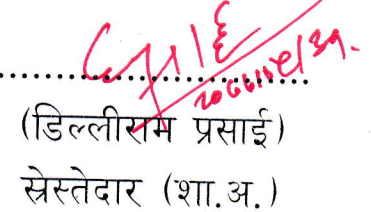 (डिल्लीराम प्रसाई)
स्रेस्तेदार (शा.अ.)